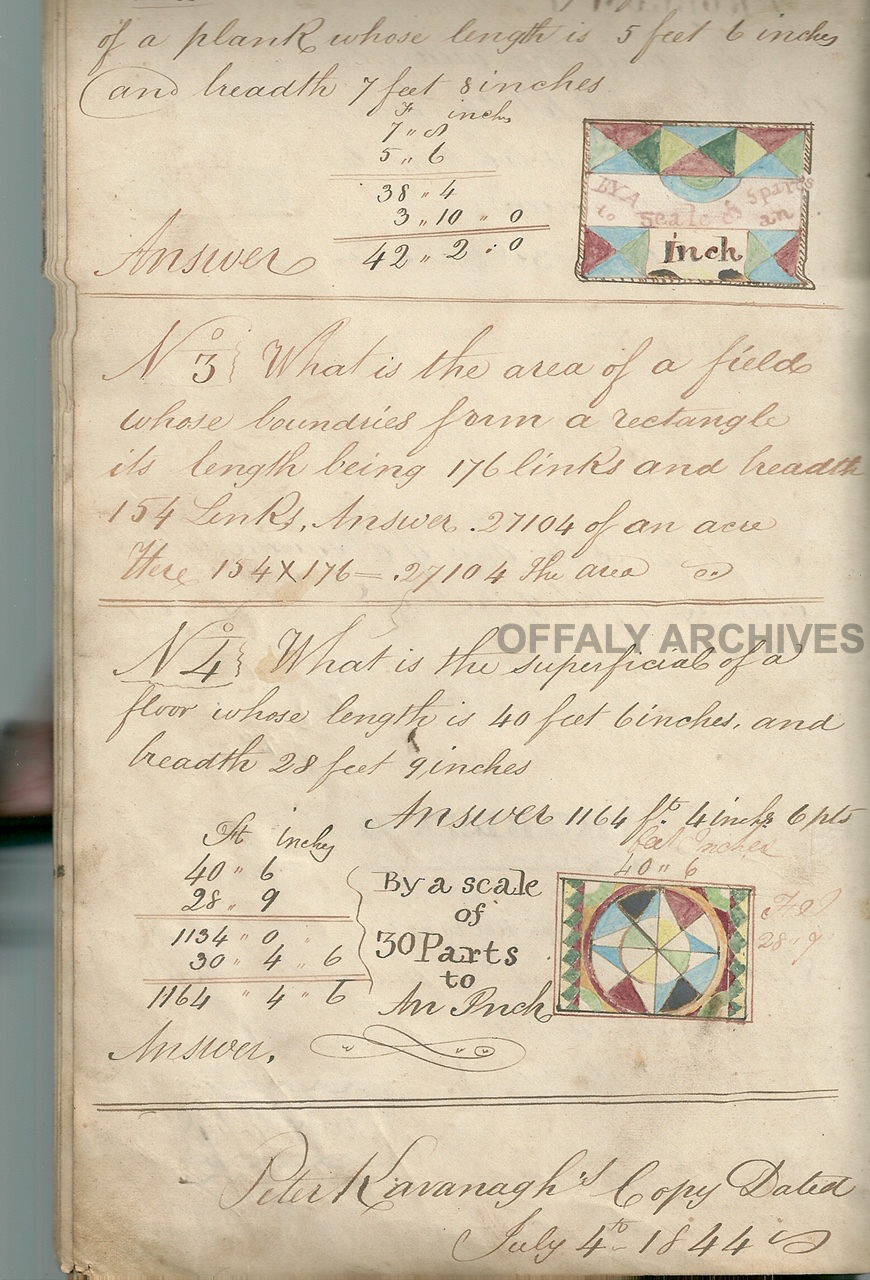 of a plank whose length is 5 feet 6 inches
and breadth 7 feet 8 inches
F inchs
7 " 8
5 " 6
38 " 4
3 " 10 " 0
Answer 42 " 2 : 0
BY A Scale of 5 parts
to an
Inch
No 3 What is the area of a field
whose boundries form a rectangle
its length being 176 links and breadth
154 Links, Answer .27104 of an acre
Here 154X176 = .27104 The area
OFFALY ARCHIVES
No 4 What is the superficial of a
floor whose length is 40 feet 6 inches, and
breadth 28 feet 9 inches
Answer 1164 ft. 4 inchs 6 pts
Ft inches
40 " 6
28 " 9
1134 " 0
30 " 4 " 6
1164 " 4 " 6
Answer.
By a scale
of
30 Parts
to
An Inch
feet Inches
40 " 6
28 " 9
Peter Kavanagh's Copy Dated
July 4th 1844